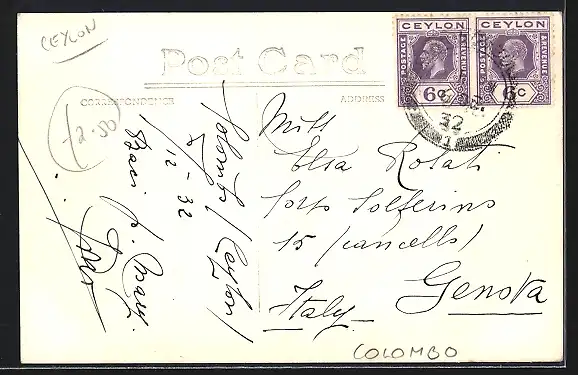 CEYLON
Post Card
CORRESPONDENCE
ADDRESS
CEYLON
POSTAGE & REVENUE
6c
CEYLON
POSTAGE & REVENUE
6c
32
1
12-50
Colombo (Ceylon)
12-32
Baci
Miss
Elsa Rosati
Corso Solferino
15 (cancello)
Genova
Italy
COLOMBO